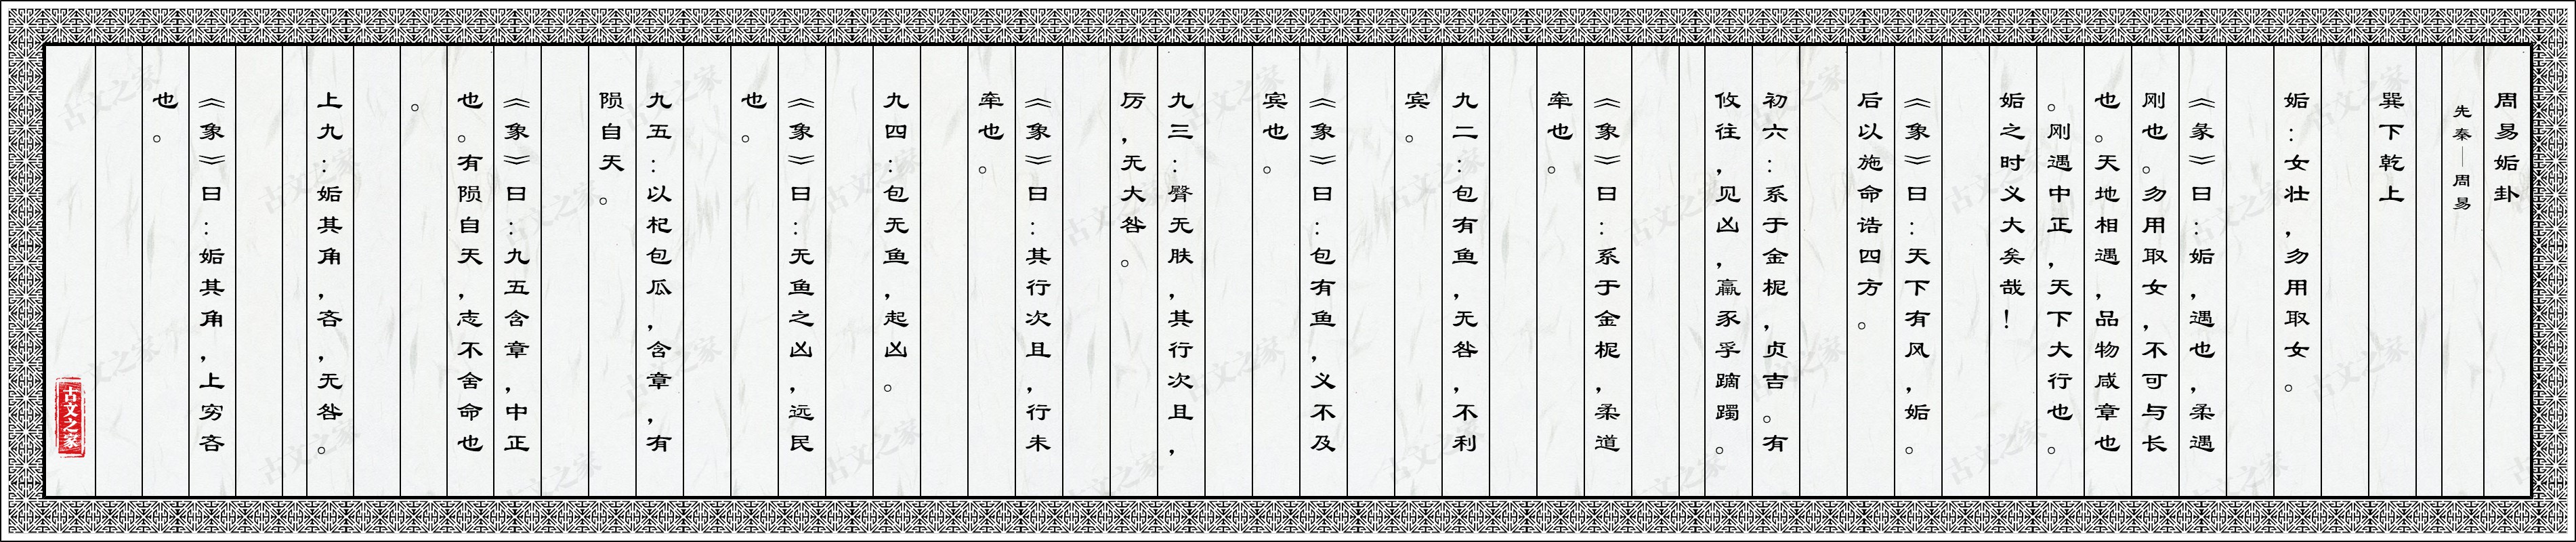 周易姤卦
先秦—周易
巽下乾上
姤：女壮，勿用取女。
《彖》曰：姤，遇也，柔遇
刚也。勿用取女，不可与长
也。天地相遇，品物咸章也
。刚遇中正，天下大行也。
姤之时义大矣哉！
《象》曰：天下有风，姤。
后以施命诰四方。
初六：系于金柅，贞吉。有
攸往，见凶，羸豕孚蹢躅。
《象》曰：系于金柅，柔道
牵也。
九二：包有鱼，无咎，不利
宾。
《象》曰：包有鱼，义不及
宾也。
九三：臀无肤，其行次且，
厉，无大咎。
《象》曰：其行次且，行未
牵也。
九四：包无鱼，起凶。
《象》曰：无鱼之凶，远民
也。
九五：以杞包瓜，含章，有
陨自天。
《象》曰：九五含章，中正
也。有陨自天，志不舍命也
。
上九：姤其角，吝，无咎。
《象》曰：姤其角，上穷吝
也。
古文之家